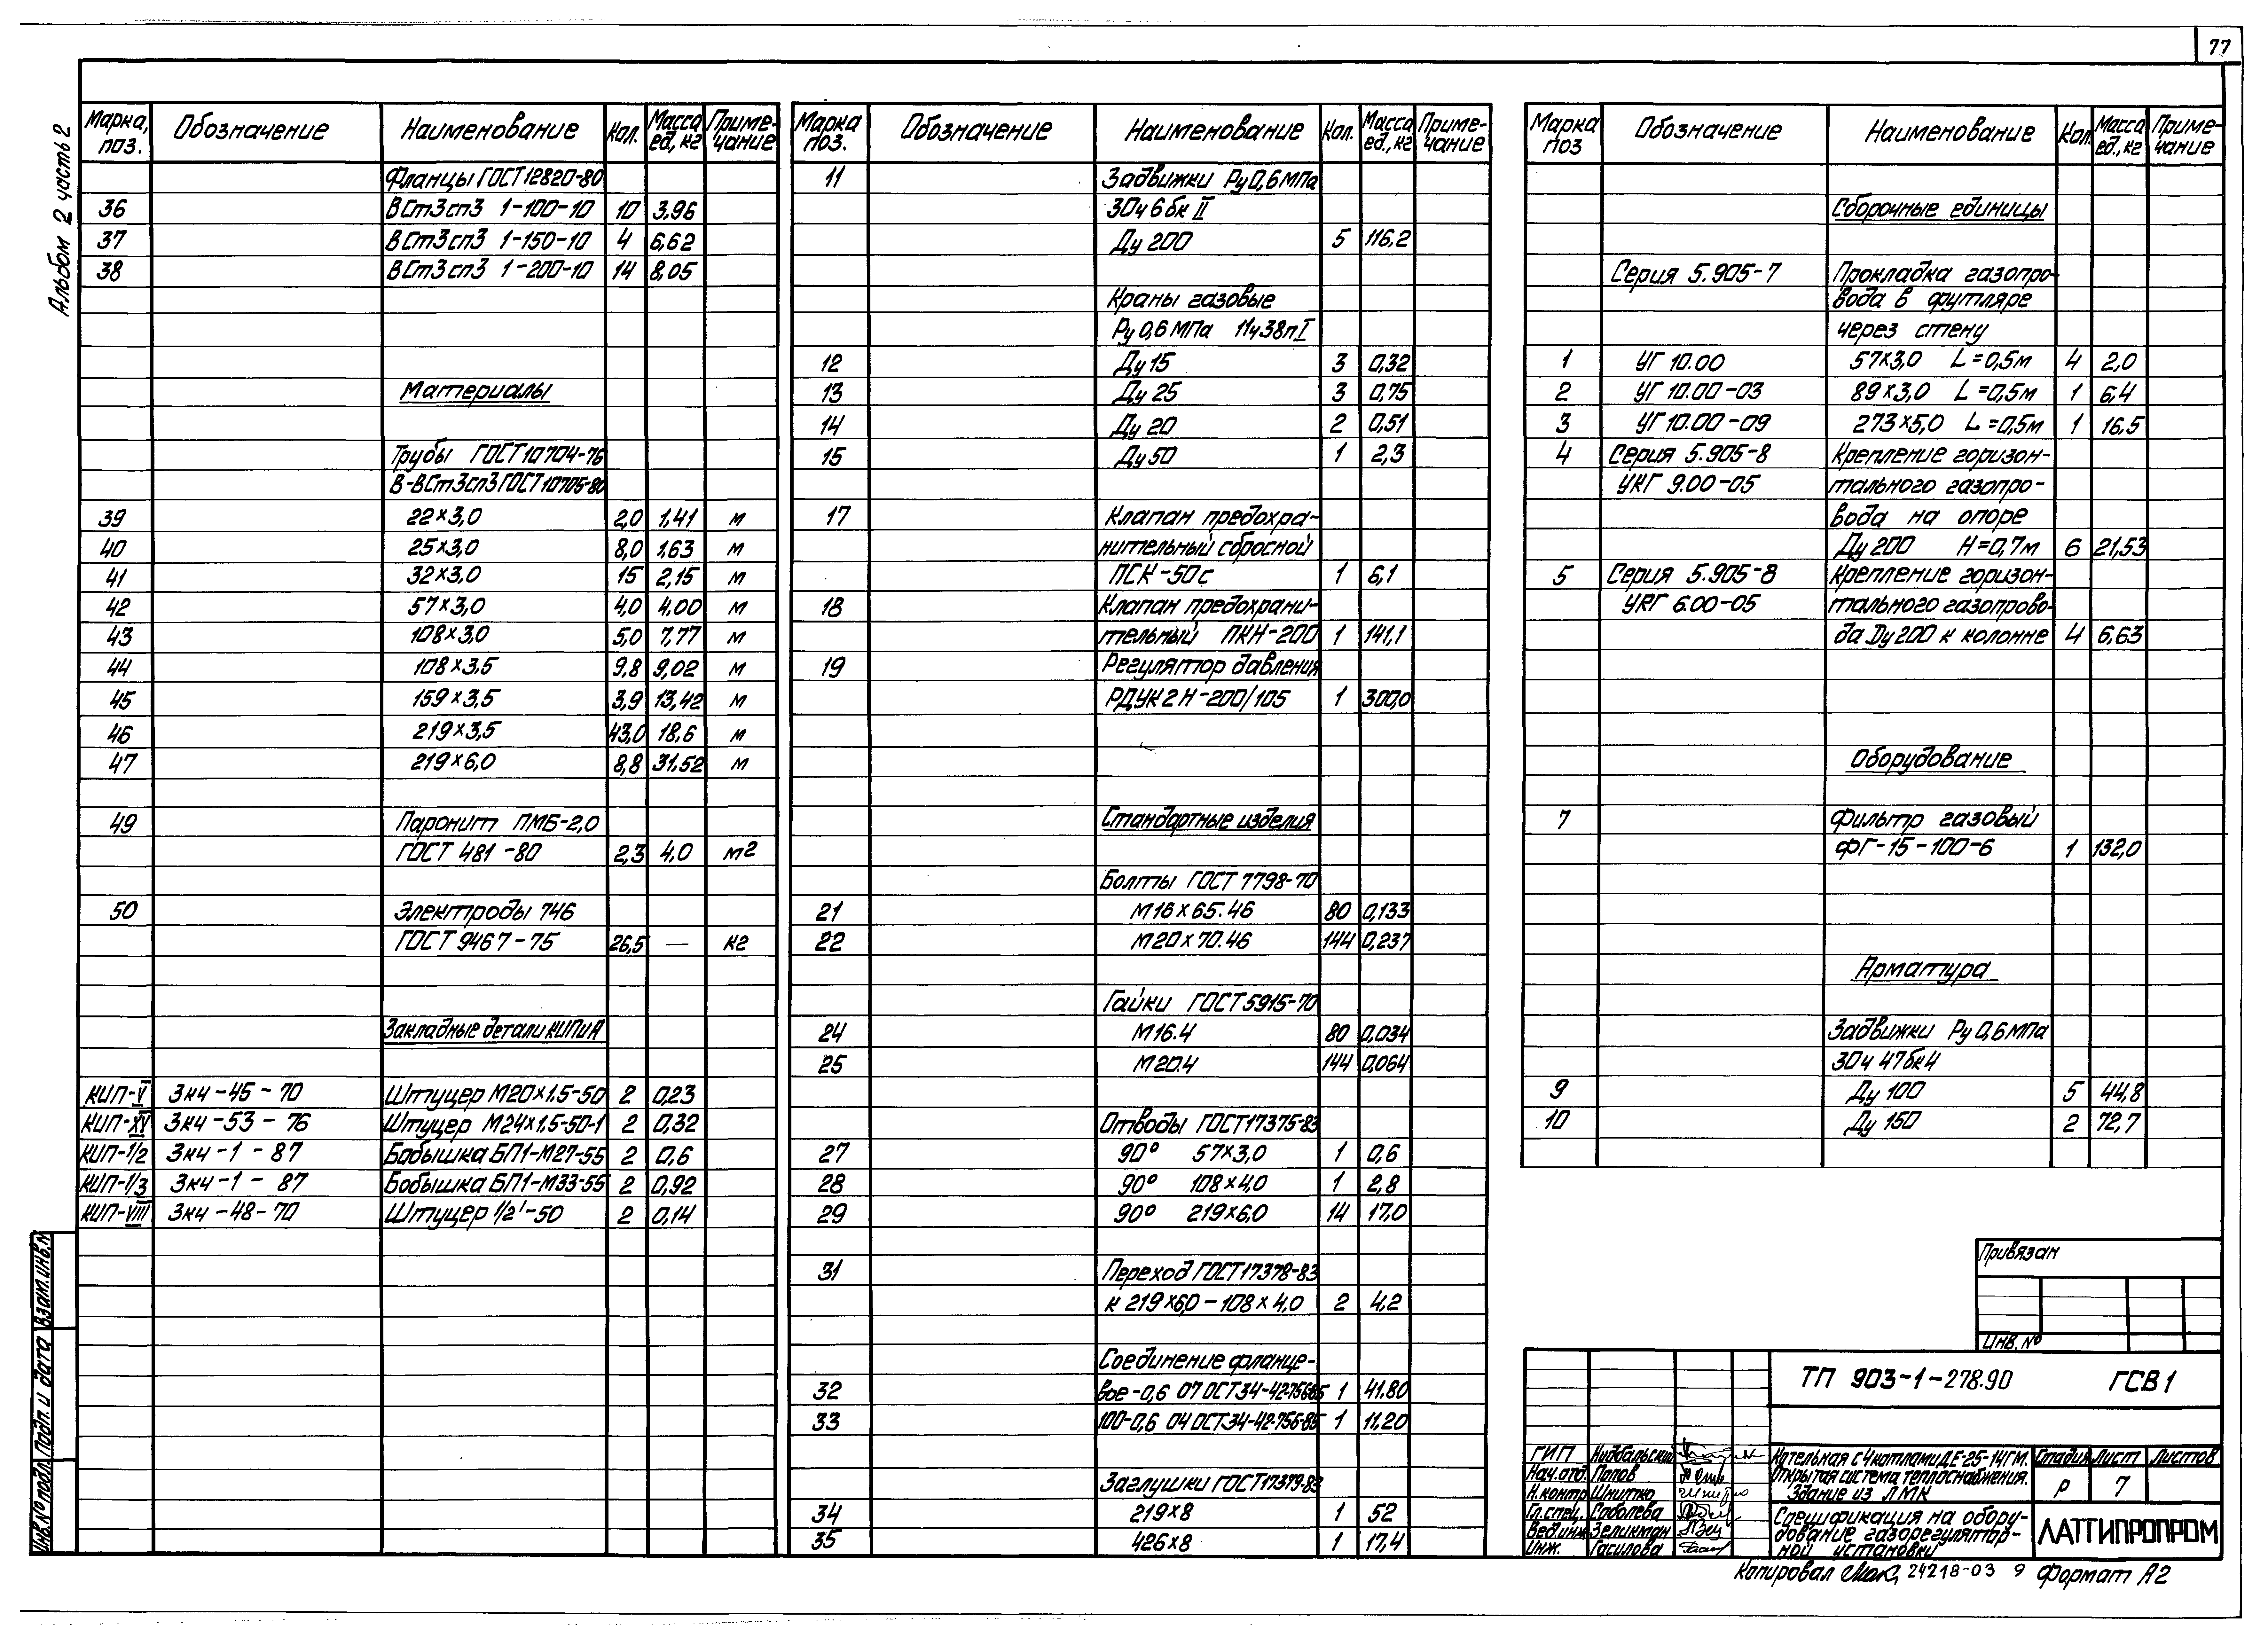 77
Альбом 2 часть 2
Марка, поз. Обозначение Наименование Кол. Масса ед, кг Приме-чание
Фланцы ГОСТ 12820-80
36 ВСт3сп3 1-100-10 10 3,96
37 ВСт3сп3 1-150-10 4 6,62
38 ВСт3сп3 1-200-10 14 8,05
Материалы
Трубы ГОСТ 10704-76
В-ВСт3сп3 ГОСТ 10705-80
39 22×3,0 2,0 1,41 м
40 25×3,0 8,0 1,63 м
41 32×3,0 15 2,15 м
42 57×3,0 4,0 4,00 м
43 108×3,0 5,0 7,77 м
44 108×3,5 9,8 9,02 м
45 159×3,5 3,9 13,42 м
46 219×3,5 43,0 18,6 м
47 219×6,0 8,8 31,52 м
49 Паронит ПМБ-2,0
ГОСТ 481-80 2,3 4,0 м2
50 Электроды Э46
ГОСТ 9467-75 26,5 — кг
Закладные детали КИПиА
КИП-V ЗКЧ-45-70 Штуцер М20×1.5-50 2 0,23
КИП-XV ЗКЧ-53-76 Штуцер М24×1,5-50-1 2 0,32
КИП-1/2 ЗКЧ-1-87 Бобышка БП1-М27-55 2 0,6
КИП-1/3 ЗКЧ-1-87 Бобышка БП1-М33-55 2 0,92
КИП-VIII ЗКЧ-48-70 Штуцер 1/2'-50 2 0,14
Марка поз. Обозначение Наименование Кол. Масса ед., кг Приме-чание
11 Задвижки Ру 0,6 МПа
30ч6бк II
Ду 200 5 116,2
Краны газовые
Ру 0,6 МПа 11ч38п I
12 Ду 15 3 0,32
13 Ду 25 3 0,75
14 Ду 20 2 0,51
15 Ду 50 1 2,3
17 Клапан предохра-
нительный сбросной
ПСК-50с 1 6,1
18 Клапан предохрани-
тельный ПКН-200 1 141,1
19 Регулятор давления
РДУК 2Н-200/105 1 300,0
Стандартные изделия
Болты ГОСТ 7798-70
21 М16×65.46 80 0,133
22 М20×70.46 144 0,237
Гайки ГОСТ 5915-70
24 М16.4 80 0,034
25 М20.4 144 0,064
Отводы ГОСТ 17375-83
27 90° 57×3,0 1 0,6
28 90° 108×4,0 1 2,8
29 90° 219×6,0 14 17,0
31 Переход ГОСТ 17378-83
К 219×6,0-108×4,0 2 4,2
Соединение фланце-
32 вое -0,6 07 ОСТ 34-42-756-85 1 41.80
33 100-0,6 04 ОСТ 34-42-756-85 1 11,20
Заглушки ГОСТ 17379-83
34 219×8 1 52
35 426×8 1 17,4
Марка поз Обозначение Наименование Кол. Масса ед., кг Приме-чание
Сборочные единицы
Серия 5.905-7 Прокладка газопро-
вода в футляре
через стену
1 УГ 10.00 57×3,0 L=0,5м 4 2,0
2 УГ 10.00-03 89×3,0 L=0,5м 1 6,4
3 УГ 10.00-09 273×5,0 L=0,5м 1 16,5
4 Серия 5.905-8 Крепление горизон-
УКГ 9.00-05 тального газопро-
вода на опоре
Ду 200 H=0,7м 6 21,53
5 Серия 5.905-8 Крепление горизон-
УКГ 6.00-05 тального газопрово-
да Ду 200 к колонне 4 6,63
Оборудование
7 Фильтр газовый
ФГ-15-100-6 1 132,0
Арматура
Задвижки Ру 0,6 МПа
30ч47бк4
9 Ду 100 5 44,8
10 Ду 150 2 72,7
Привязан
Инв. №
ТП 903-1-278.90 ГСВ1
ГИП Нидбальский
Нач.отд. Попов
Н.контр Шнитко
Гл.спец. Соболева
Вед.инж Зеликман
Инж. Гасилова
Котельная с 4 котлами ДЕ-25-14ГМ.
Открытая система теплоснабжения.
Здание из ЛМК
Стадия Лист Листов
Р 7
Спецификация на обору-
дование газорегулятор-
ной установки
ЛАТГИПРОПРОМ
Копировал 24218-03 9 Формат А2
Инв.№ подл. Подп. и дата Взам.инв.№